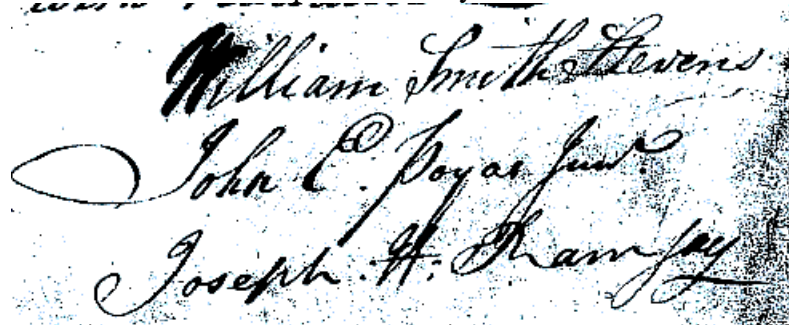 William Smith Stevens
John E. Poyas Junr.
Joseph H. Ramsay